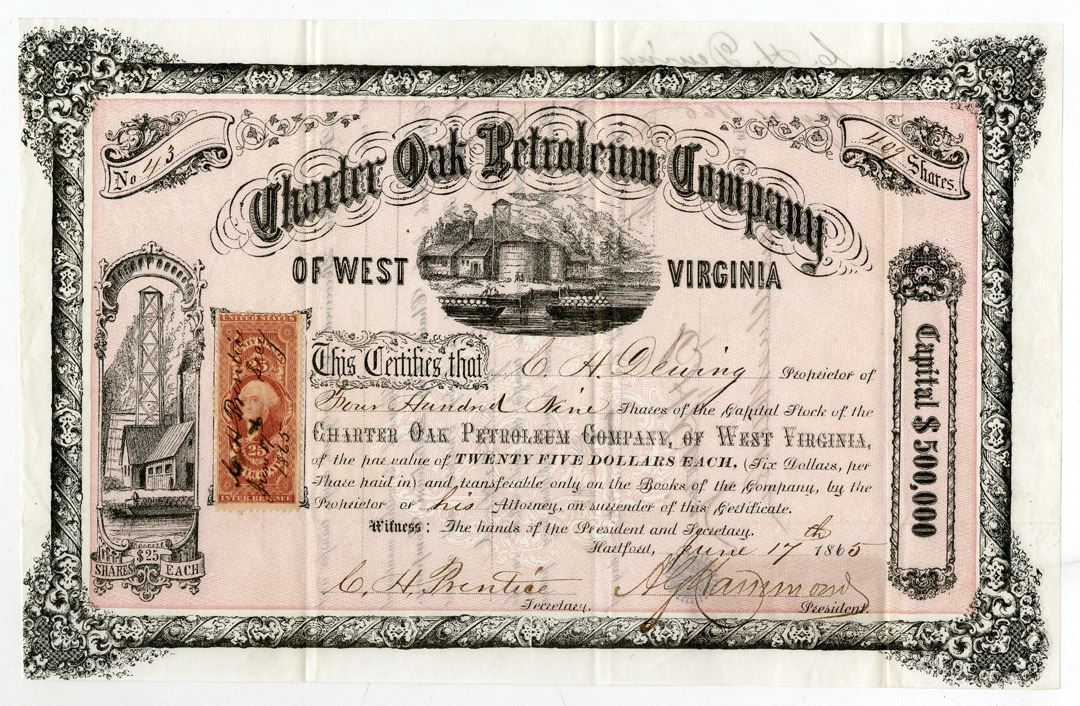 No 43
409 Shares.
Charter Oak Petroleum Company
OF WEST VIRGINIA
UNITED STATES
25
INTER. REVENUE
C H Prentice
1865
This Certifies that C. H. Dewing Proprietor of
Four Hundred Nine Shares of the Capital Stock of the
CHARTER OAK PETROLEUM COMPANY, OF WEST VIRGINIA,
of the par value of TWENTY FIVE DOLLARS EACH. (Six Dollars, per
Share paid in) and transferable only on the Books of the Company, by the
Proprietor or his Attorney, on surrender of this Certificate.
Witness: The hands of the President and Secretary.
Hartford, June 17th 1865
C. H. Prentice
Secretary.
Hammond
President.
SHARES $25 EACH
Capital $500,000
C. H. Dewing